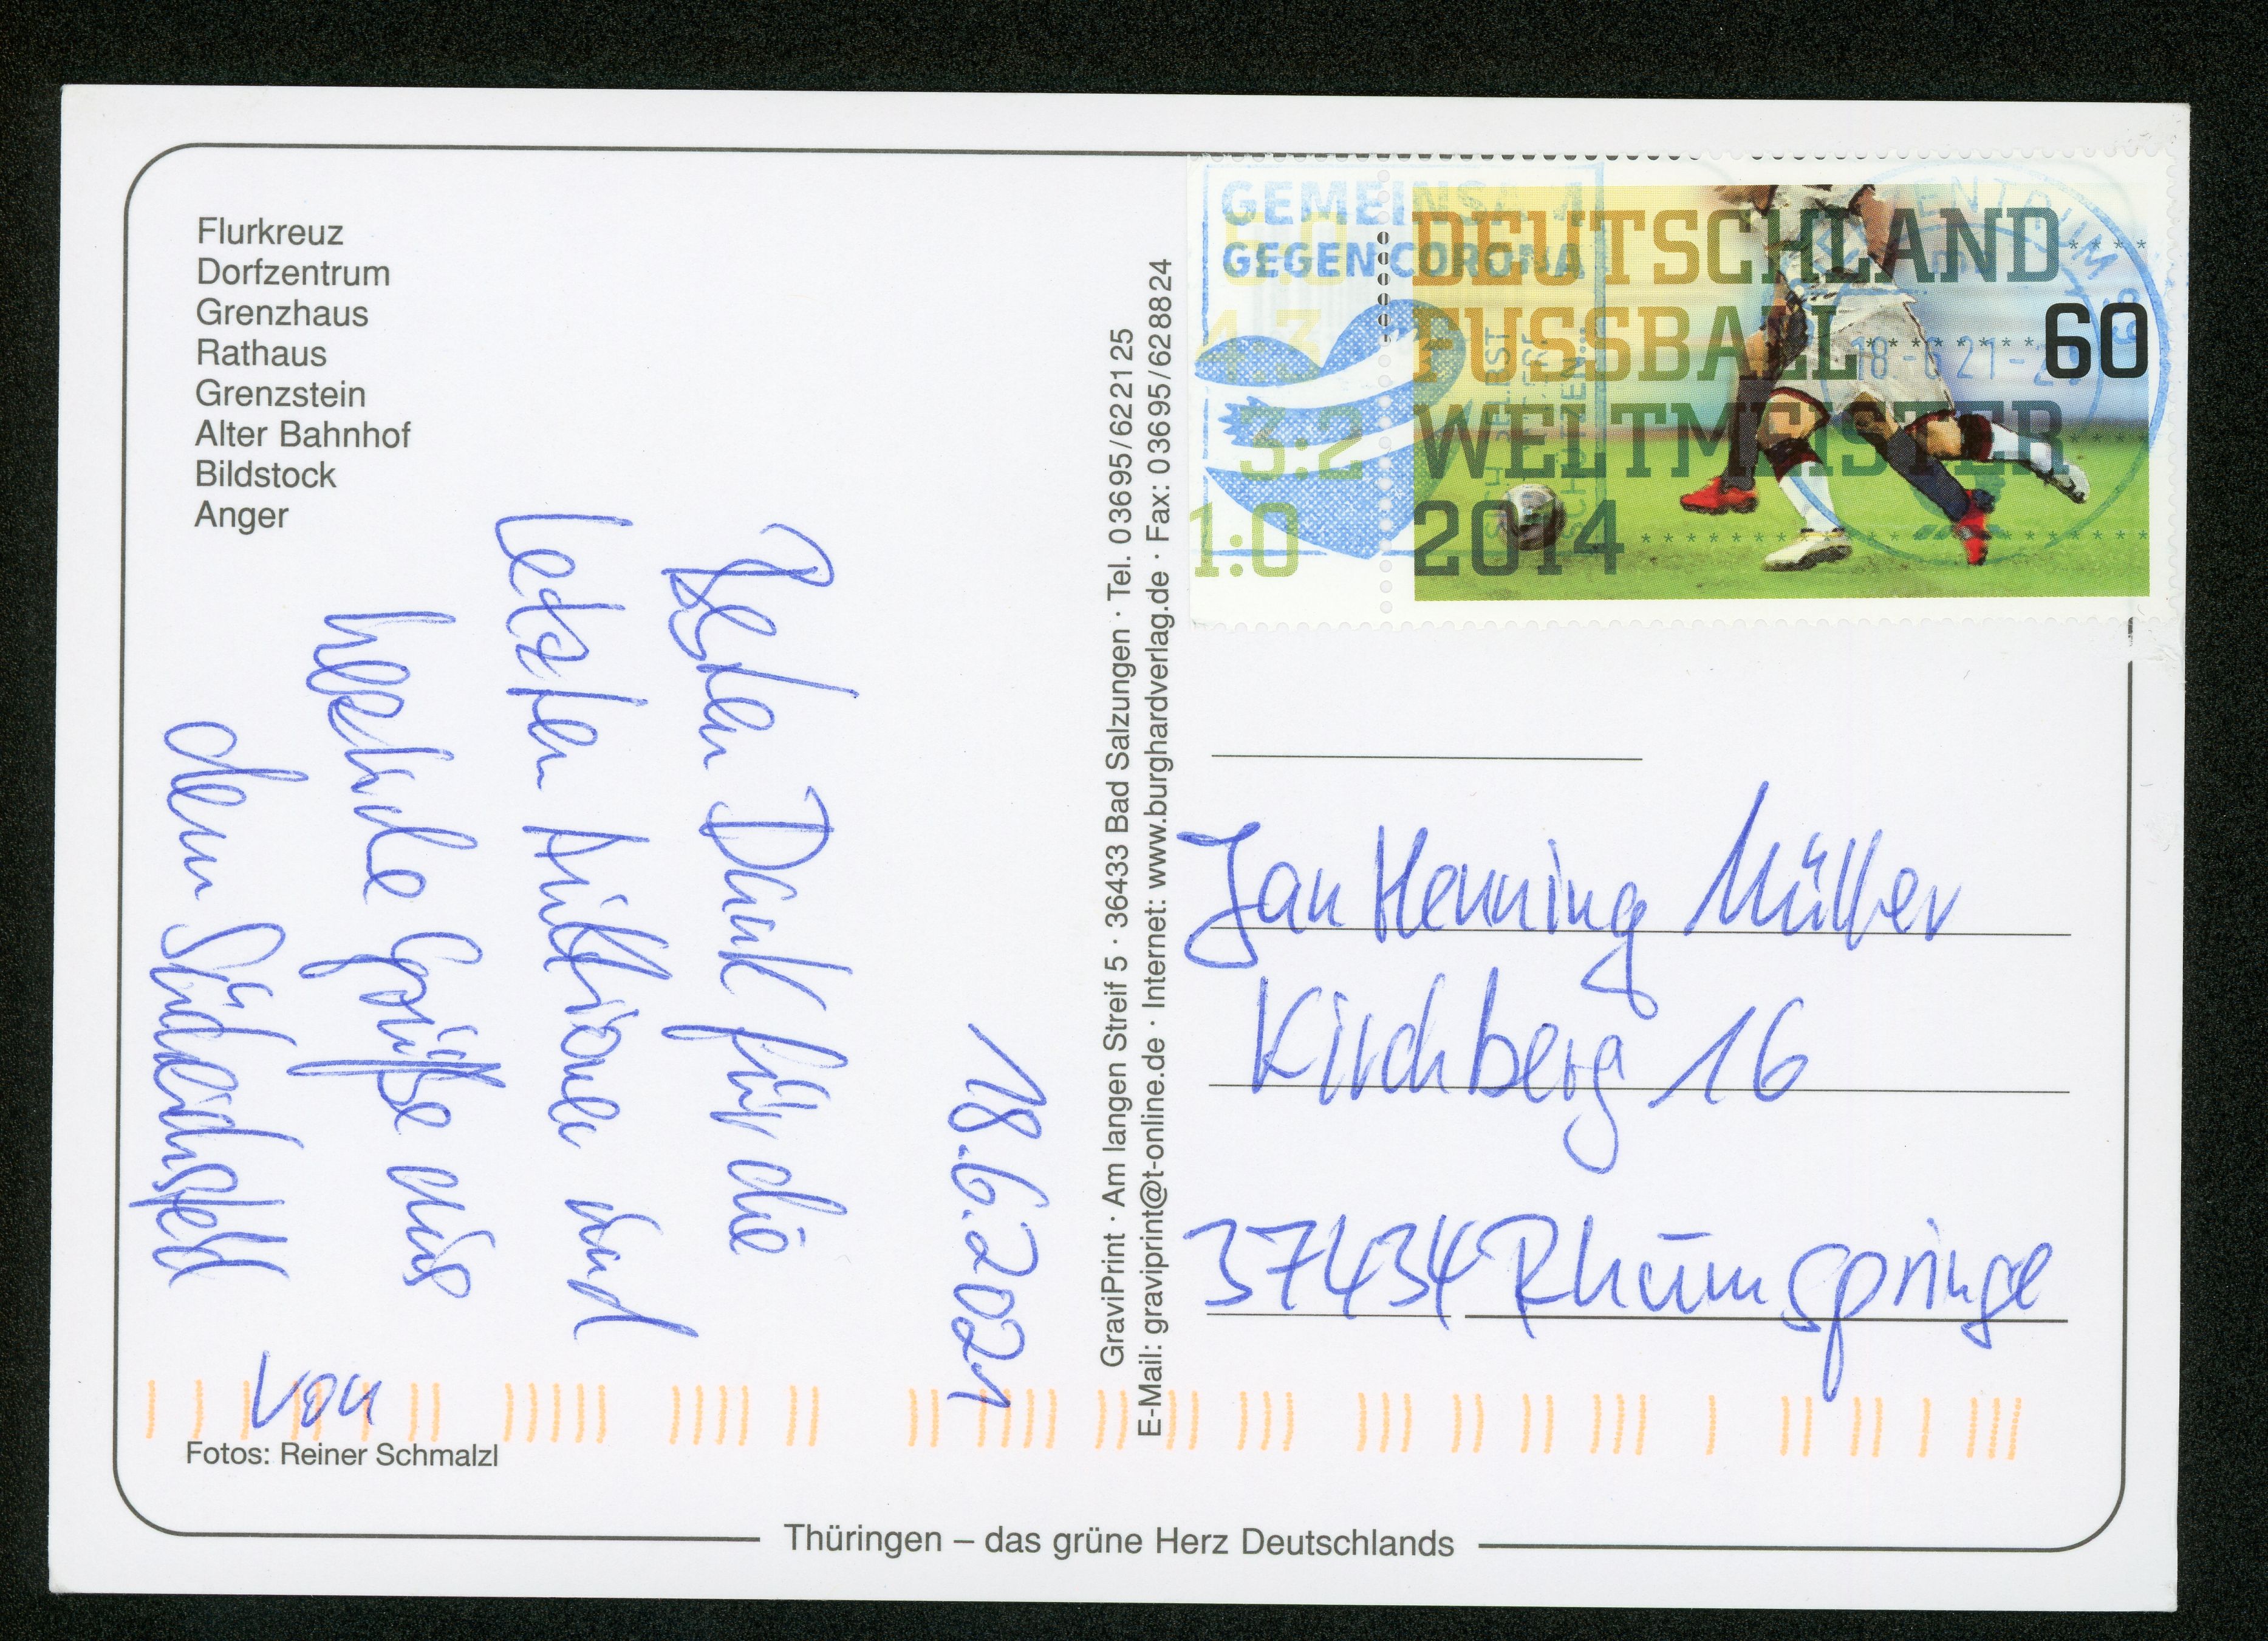 Flurkreuz
Dorfzentrum
Grenzhaus
Rathaus
Grenzstein
Alter Bahnhof
Bildstock
Anger
18.6.2021
Besten Dank für die
letzten Auktionen und
herzliche Grüße aus
dem Südeichsfeld
von
Fotos: Reiner Schmalzl
Thüringen – das grüne Herz Deutschlands
GraviPrint · Am langen Streif 5 · 36433 Bad Salzungen · Tel. 03695/622125
E-Mail: graviprint@t-online.de · Internet: www.burghardverlag.de · Fax: 03695/628824
GEMEINSAM
GEGEN CORONA
SICH SELBST
SCHÜTZEN...
4:3
3:2
1:0
DEUTSCHLAND
FUSSBALL
WELTMEISTER
2014
60
18-6 21-2
Jan Henning Müller
Kirchberg 16
37434 Rhumspringe